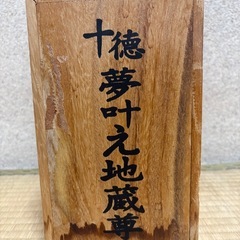 十徳
夢叶え地蔵尊